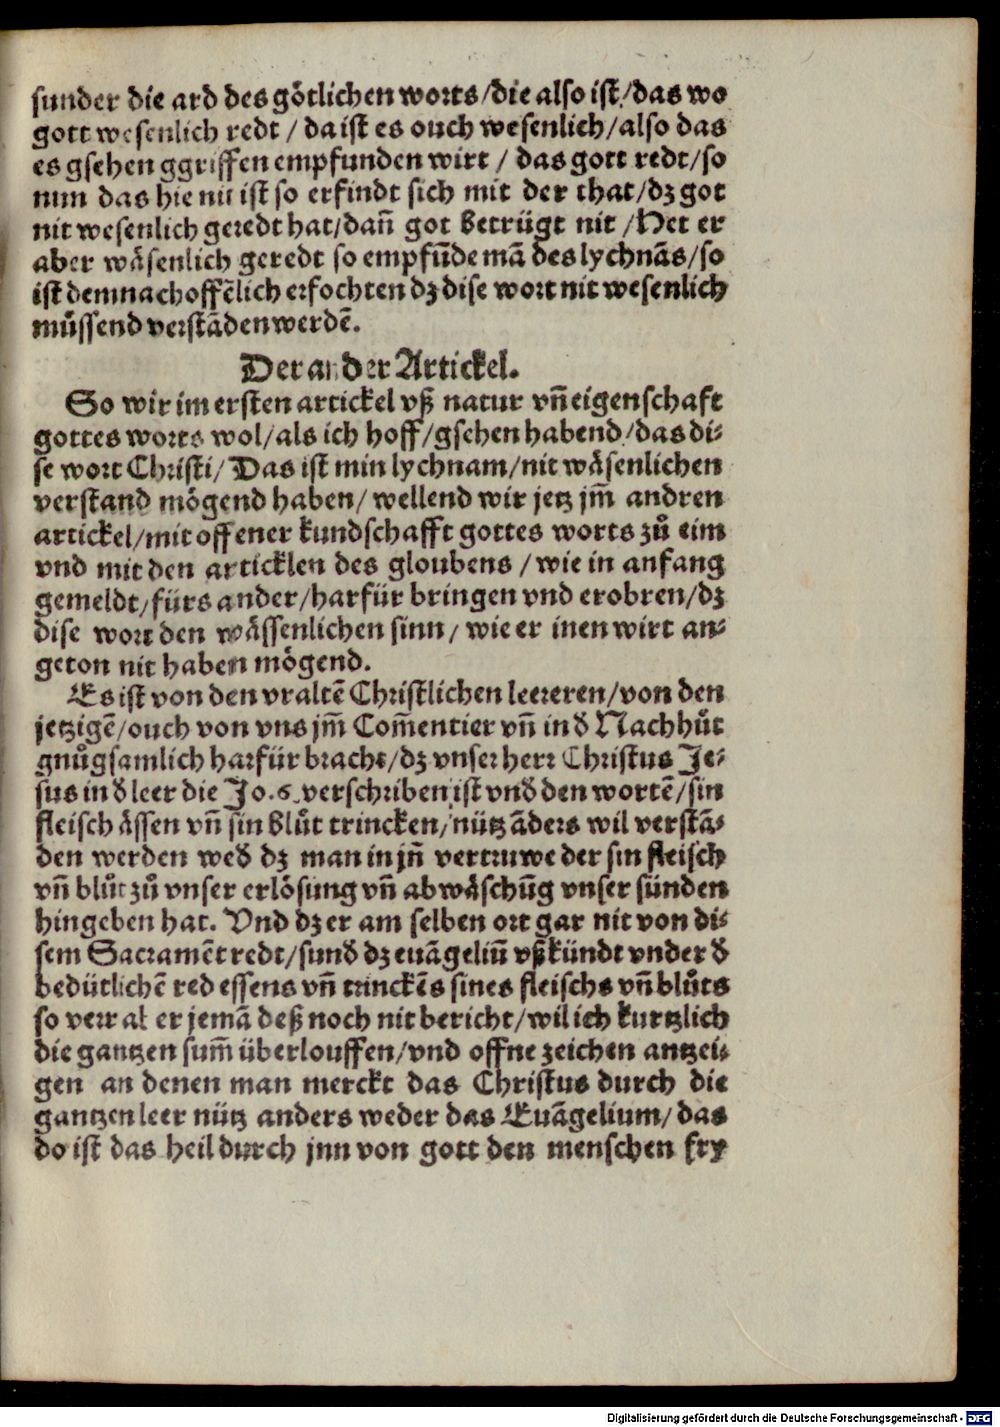 sunder die ard des götlichen worts/die also ist/das wo
gott wesenlich redt / da ist es ouch wesenlich/also das
es gsehen ggriffen empfunden wirt / das gott redt/so
nun das hie nit ist so erfindt sich mit der that/dz got
nit wesenlich geredt hat/dañ got betrügt nit /Het er
aber wäsenlich geredt so empfūde mā des lychnãs/so
ist demnach offēlich erfochten dz dise wort nit wesenlich
müssend verstādenwerdē.
Der ander Artickel.
So wir im ersten artickel vß natur vñ eigenschaft
gottes worts wol/als ich hoff/gsehen habend/das di⸗
se wort Christi/ Das ist min lychnam/nit wäsenlichen
verstand mögend haben/ wellend wir jetz jm̄ andren
artickel/mit offener kundschafft gottes worts zů eim
vnd mit den articklen des gloubens /wie in anfang
gemeldt/fürs ander/harfür bringen vnd erobren/dz
dise wort den wässenlichen sinn/ wie er inen wirt an⸗
geton nit haben mögend.
Es ist von den vraltē Christlichen leereren/von den
jetzigē/ouch von vns jm̄ Com̄entier vñ in d̕ Nachhůt
gnůgsamlich harfür bracht/dz vnser herr Christus Je⸗
sus in d̕ leer die Jo.6.verschriben ist vnd̕ den wortē/sin
fleisch ässen vñ sin blůt trincken/nütz āders wil verstā⸗
den werden wed̕ dz man in jñ vertruwe der sin fleisch
vñ blůt zů vnser erlösung vñ abwäschūg vnser sünden
hingeben hat. Vnd dz er am selben ort gar nit von di⸗
sem Sacramēt redt/sund̕ dz euāgeliū vßkündt vnder d̕
bedütlichē red essens vñ trinckēs sines fleischs vñ blůts
so verr al er jemā deß noch nit bericht/wil ich kurtzlich
die gantzen sum̄ überlouffen/vnd offne zeichen antzei⸗
gen an denen man merckt das Christus durch die
gantzen leer nütz anders weder das Euāgelium/das
do ist das heil durch jnn von gott den menschen fry
Digitalisierung gefördert durch die Deutsche Forschungsgemeinschaft - DFG